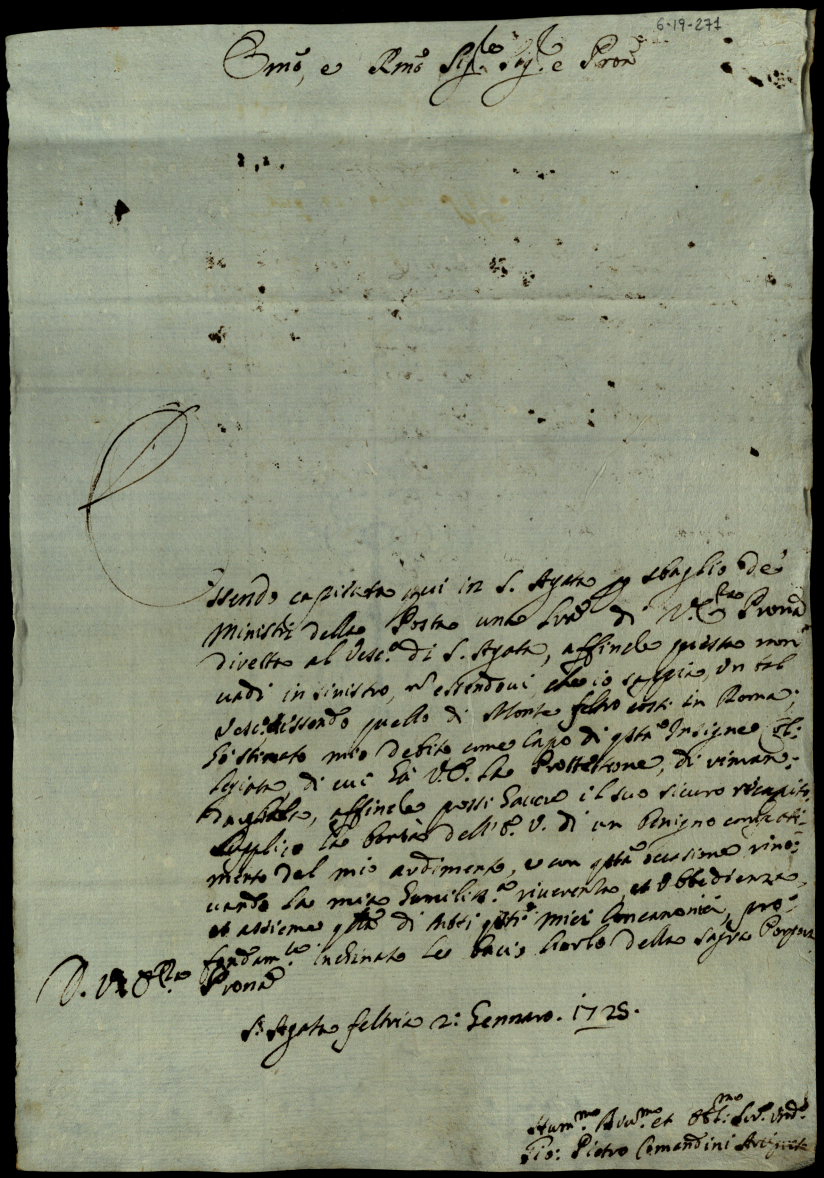 6-19-271
Emo, e Rmo Sig.re Sig.r e Pron
Essendo capitata qui in S. Agata p sbaglio de
Ministri della Posta una Lra di V. Em.za Prona
diretta al Vesc.o di S. Agata, affinche questa non
vadi in sinistro, n essendovi, che io sappia, un tal
Vesc.o essendo quello di Monte feltro costi in Roma;
hò stimato mio debito come Capo di qsta Insigne Col:
legiata, di cui hà V. E. la Protettione, di riman:
dargliela, affinche possi havere il suo sicuro recapito.
Supplico la bontà dell' E. V. di un benigno compati:
mento del mio ardimento, e con qsta occasione rino:
vando la mia humiliss.a riverenza, et obbedienza,
et assieme qlla di tutti qsti miei Concanonici, pro:
fondam.te inchinato Le bacio l'orlo della sagra Porpora
D. V. Em.za Prona
S. Agata feltria 2: Gennaro. 1725.
Hum.mo Div.mo et Obl.mo Ser.
Gio: Pietro Comandini Arciprete